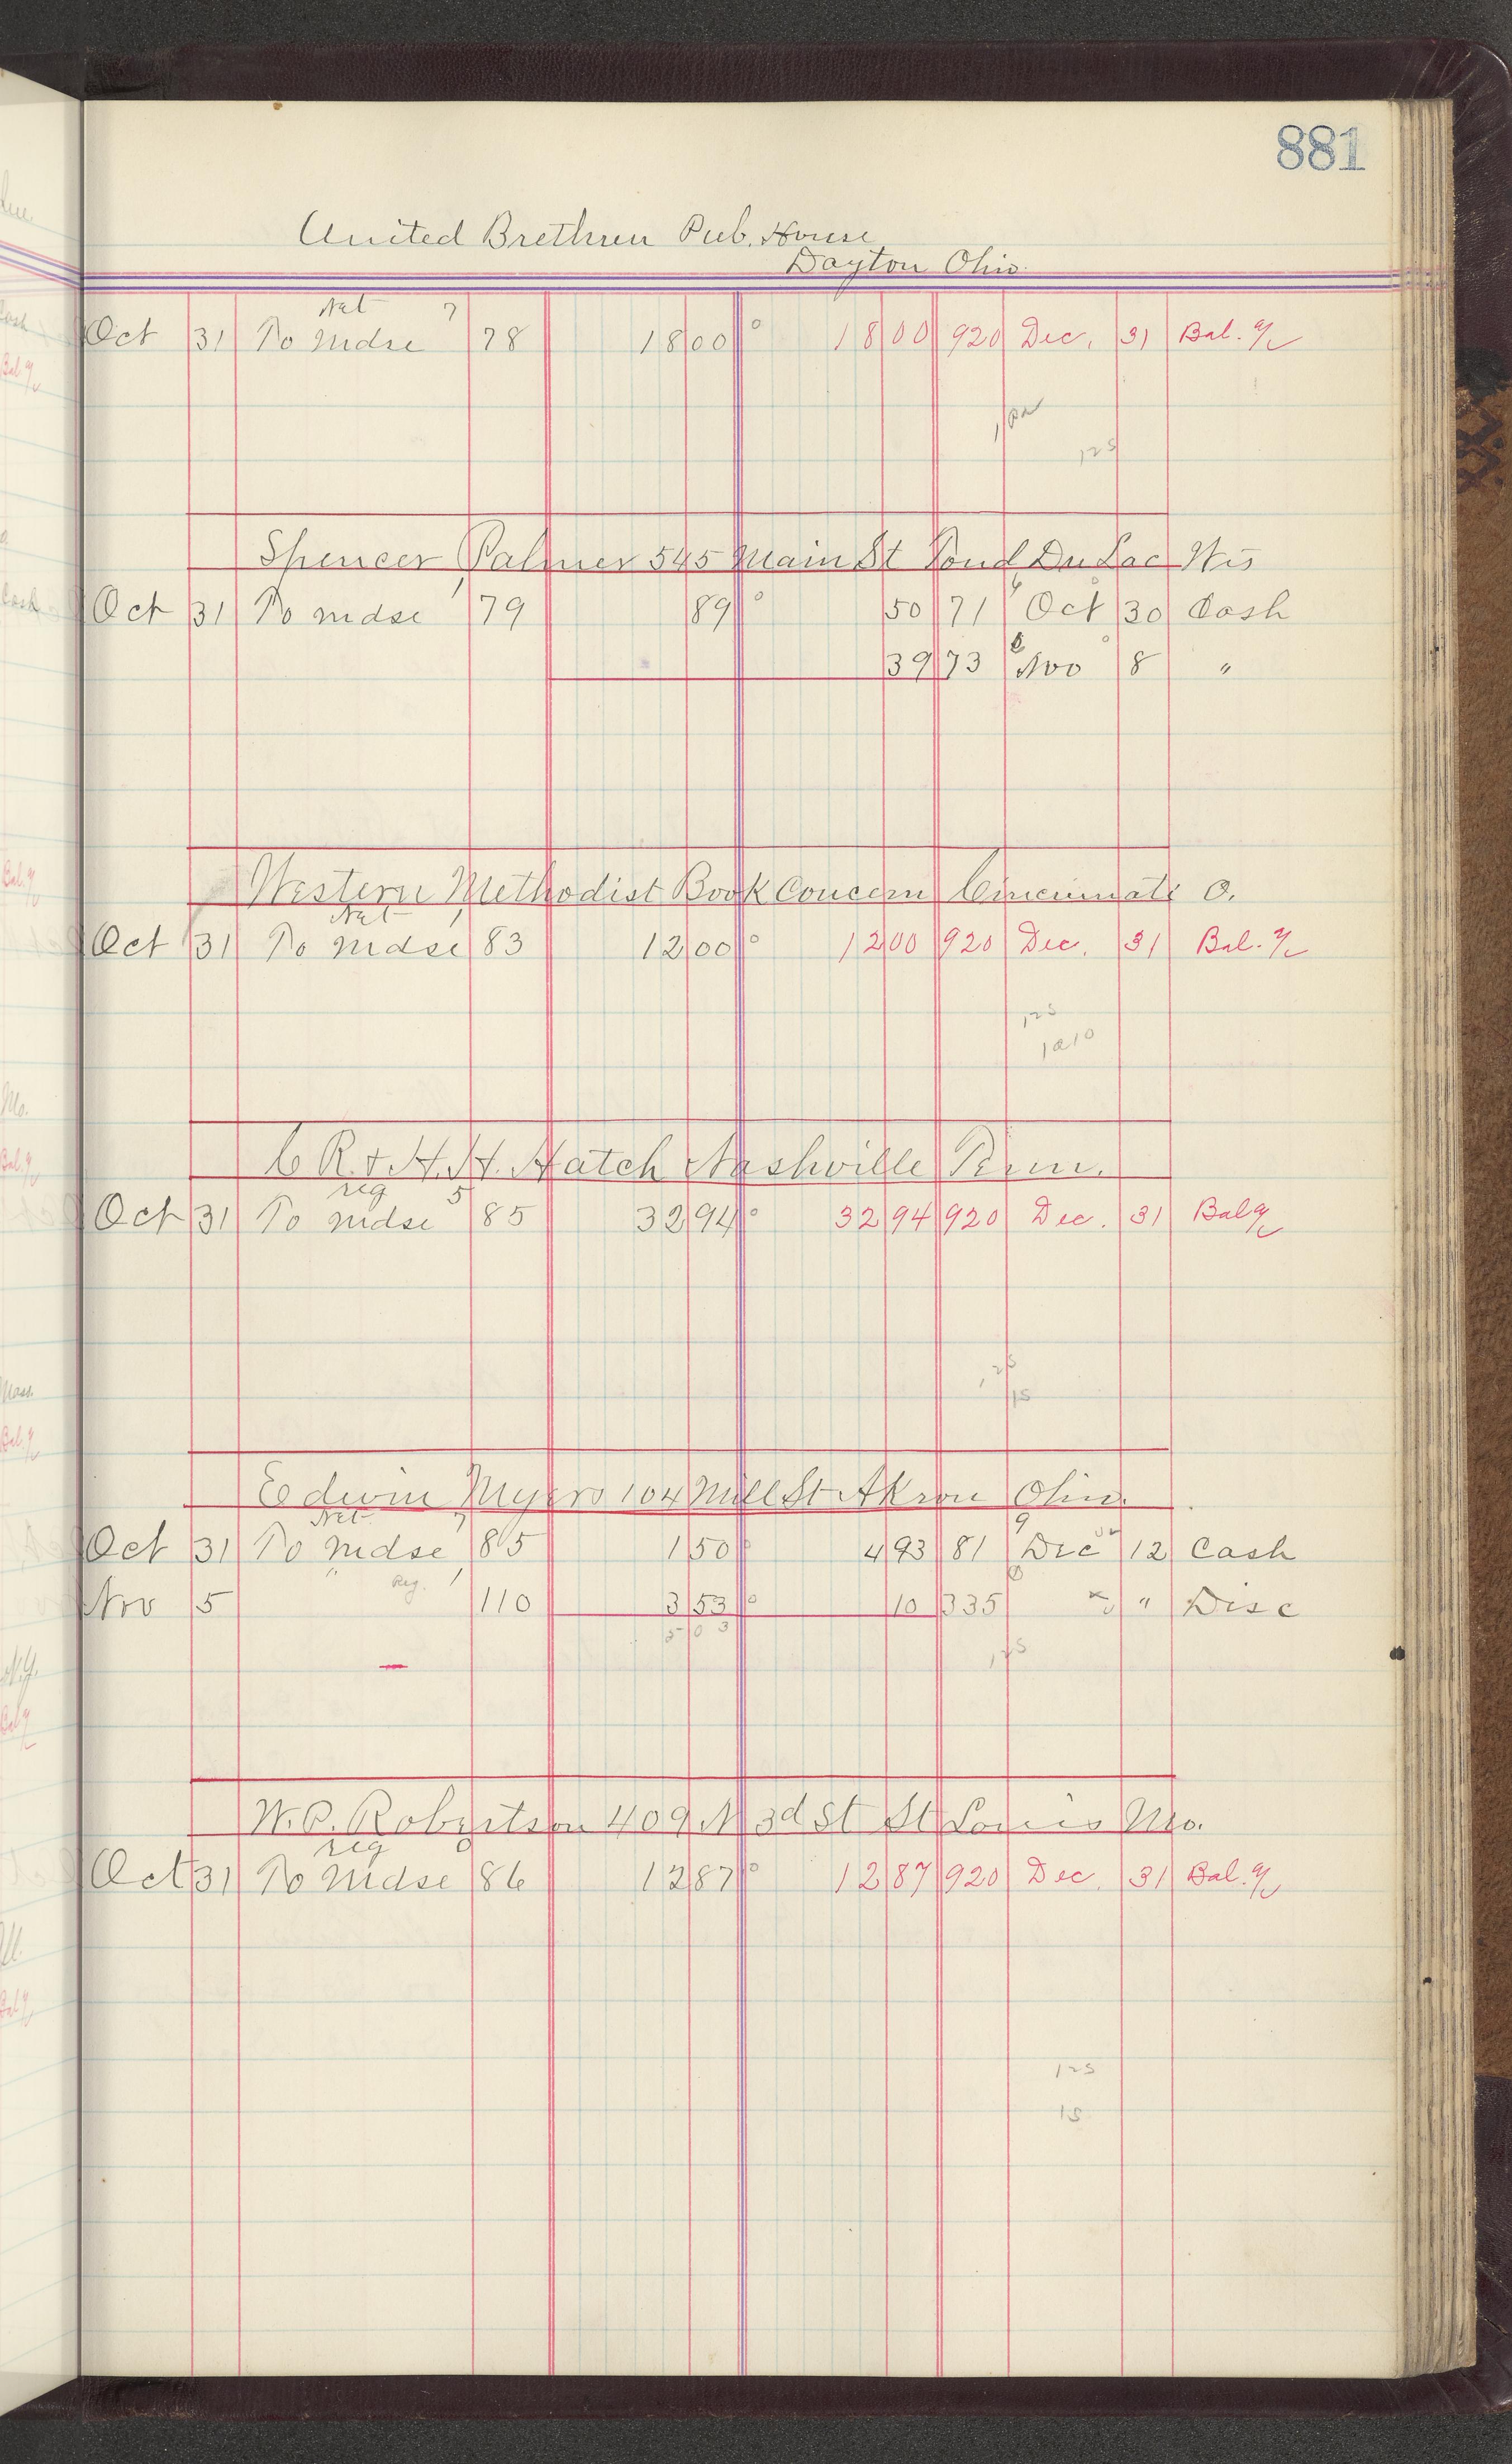 881
United Brethren Pub. House
Dayton Ohio.
Net 7
Oct 31 To Mdse 78 18 00 18 00 920 Dec. 31 Bal. a/c
125
Spencer Palmer 545 Main St Fond Du Lac Wis
Oct 31 To Mdse 79 89 50 71 Oct 30 Cash
39 73 Nov 8 "
Western Methodist Book Concern Cincinnati O.
Net
Oct 31 To Mdse 83 12 00 12 00 920 Dec. 31 Bal. a/c
125
1210
C R. & H. H. Hatch Nashville Tenn.
reg 5
Oct 31 To Mdse 85 32 94 32 94 920 Dec. 31 Bal a/c
125
15
Edwin Myers 104 Mill St Akron Ohio.
Net 7 9
Oct 31 To Mdse 85 1 50 4 93 81 Dec 12 Cash
Nov 5 " Reg. 1 110 3 53 10 335 " Disc
5 03
125
W. P. Robertson 409 N 3d St St Louis Mo.
reg 0
Oct 31 To Mdse 86 12 87 12 87 920 Dec. 31 Bal. a/c
125
15